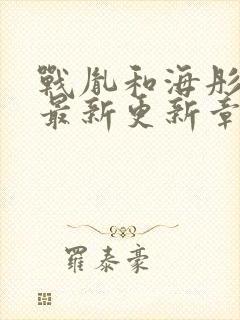 戰胤和海彤
最新更新章
羅泰豪